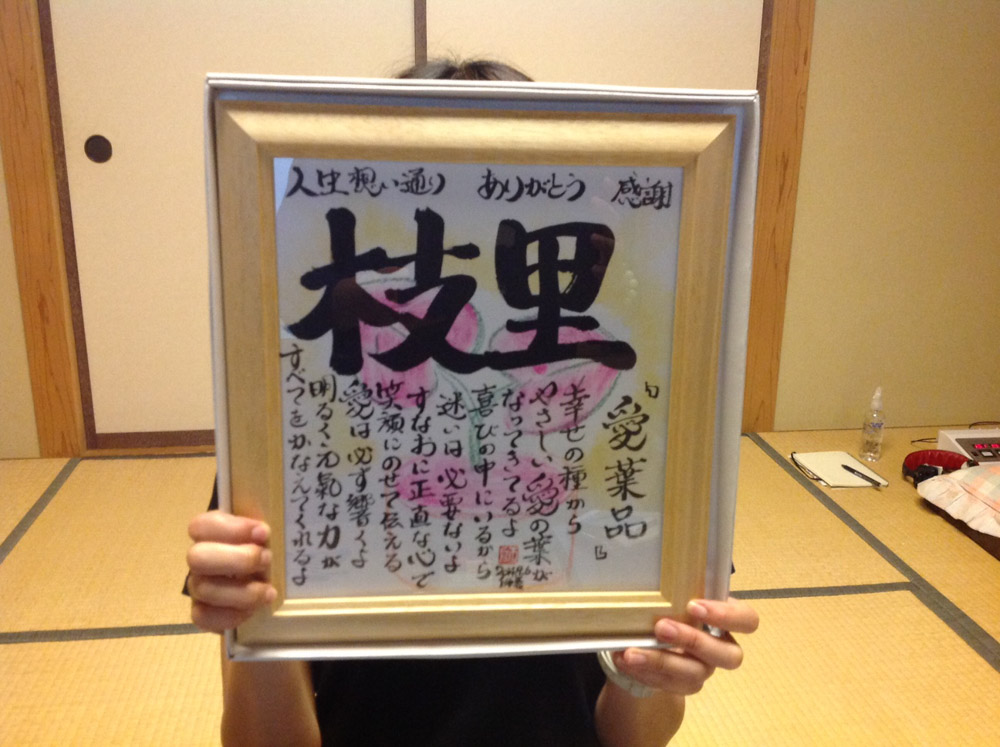 人生想い通り ありがとう 感謝
枝里
「愛葉品」
幸せの種から
やさしい愛の葉が
なってきてるよ
喜びの中にいるから
迷いは必要ないよ
すなおに正直な心で
笑顔にのせて伝える
愛は必ず響くよ
明るく元氣な力が
すべてをかなえてくれるよ